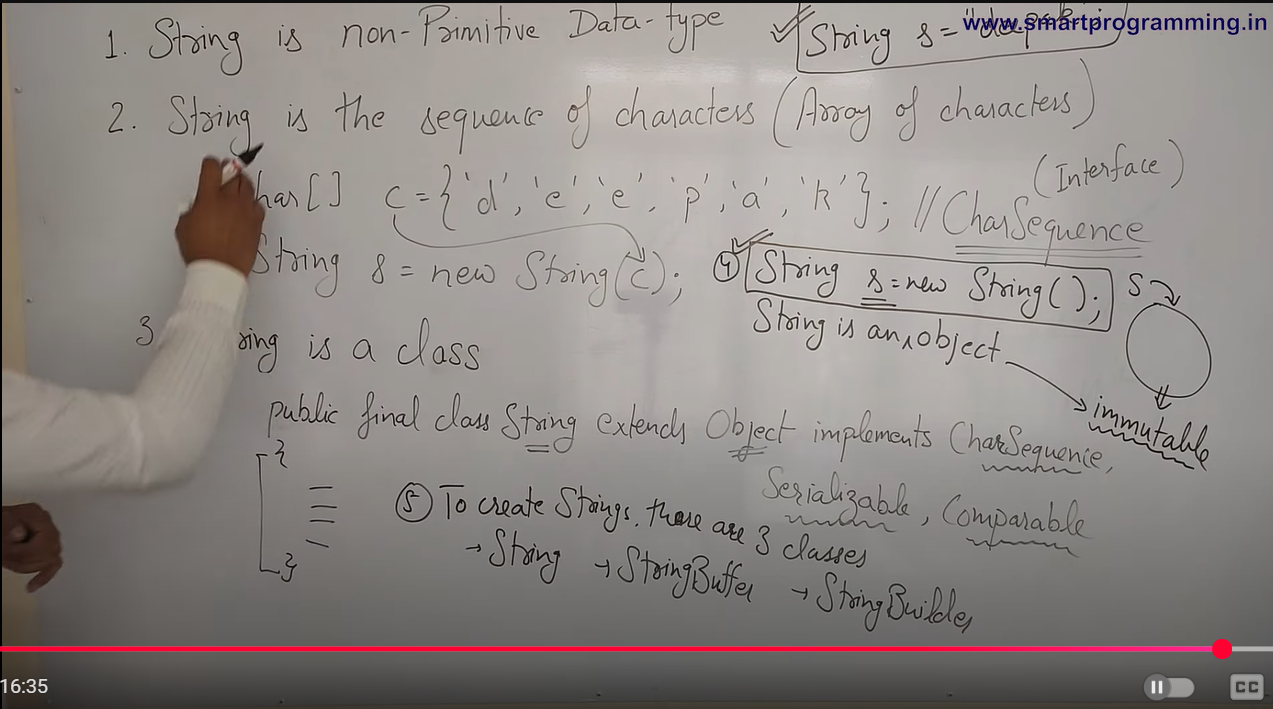 www.smartprogramming.in
1. String is non-Primitive Data-type
String s =
2. String is the sequence of characters (Array of characters)
(Interface)
har[] c = {'d', 'e', 'e', 'p', 'a', 'k'}; // CharSequence
String s = new String(c);
④ String s = new String();
s
String is an object
immutable
3 ring is a class
public final class String extends Object implements CharSequence,
Serializable, Comparable
{
⑤ To create Strings, there are 3 classes
→ String → StringBuffer → StringBuilder
}
16:35
CC